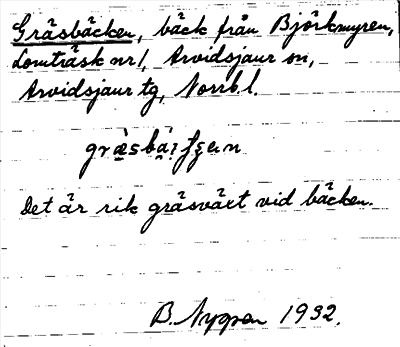 Gräsbäcken, bäck från Björkmyren,
Lomträsk nr 1, Arvidsjaur sn,
Arvidsjaur tg, Norrb. l.
Det är rik gräsväxt vid bäcken.
B. Nygren 1932.